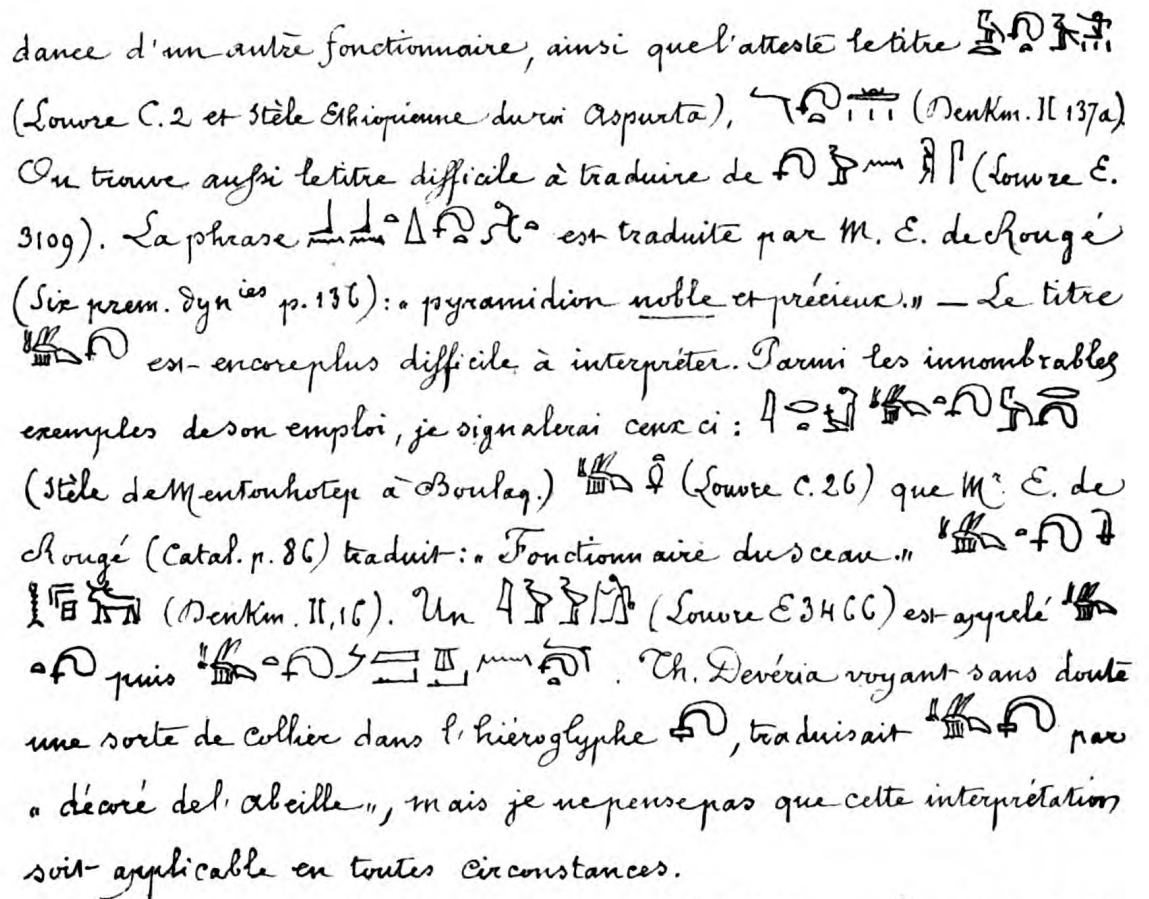 dance d'un autre fonctionnaire, ainsi que l'atteste le titre
(Louvre C. 2 et Stèle Ethiopienne du roi Aspurta), (Denkm. II 137a).
On trouve aussi le titre difficile à traduire de (Louvre E.
3109). La phrase est traduite par M. E. de Rougé
(Six prem. dyn ies p. 136) : « pyramidion noble et précieux. » — Le titre
est encore plus difficile à interpréter. Parmi les innombrables
exemples de son emploi, je signalerai ceux ci :
(Stèle de Mentouhotep à Boulaq.) (Louvre C. 26) que Mr. E. de
Rougé (Catal. p. 86) traduit : « Fonctionnaire du sceau. »
(Denkm. II, 16). Un (Louvre E 3466) est appelé
puis . Th. Devéria voyant sans doute
une sorte de collier dans l'hiéroglyphe , traduisait par
« décoré de l'abeille », mais je ne pense pas que cette interprétation
soit applicable en toutes circonstances.